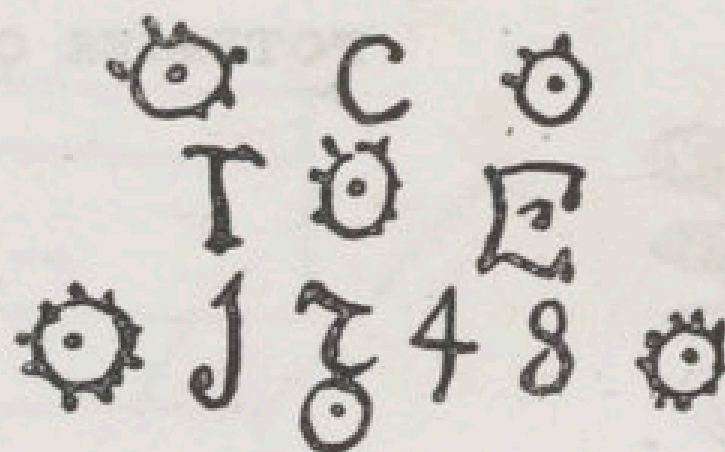 C
T E
1748